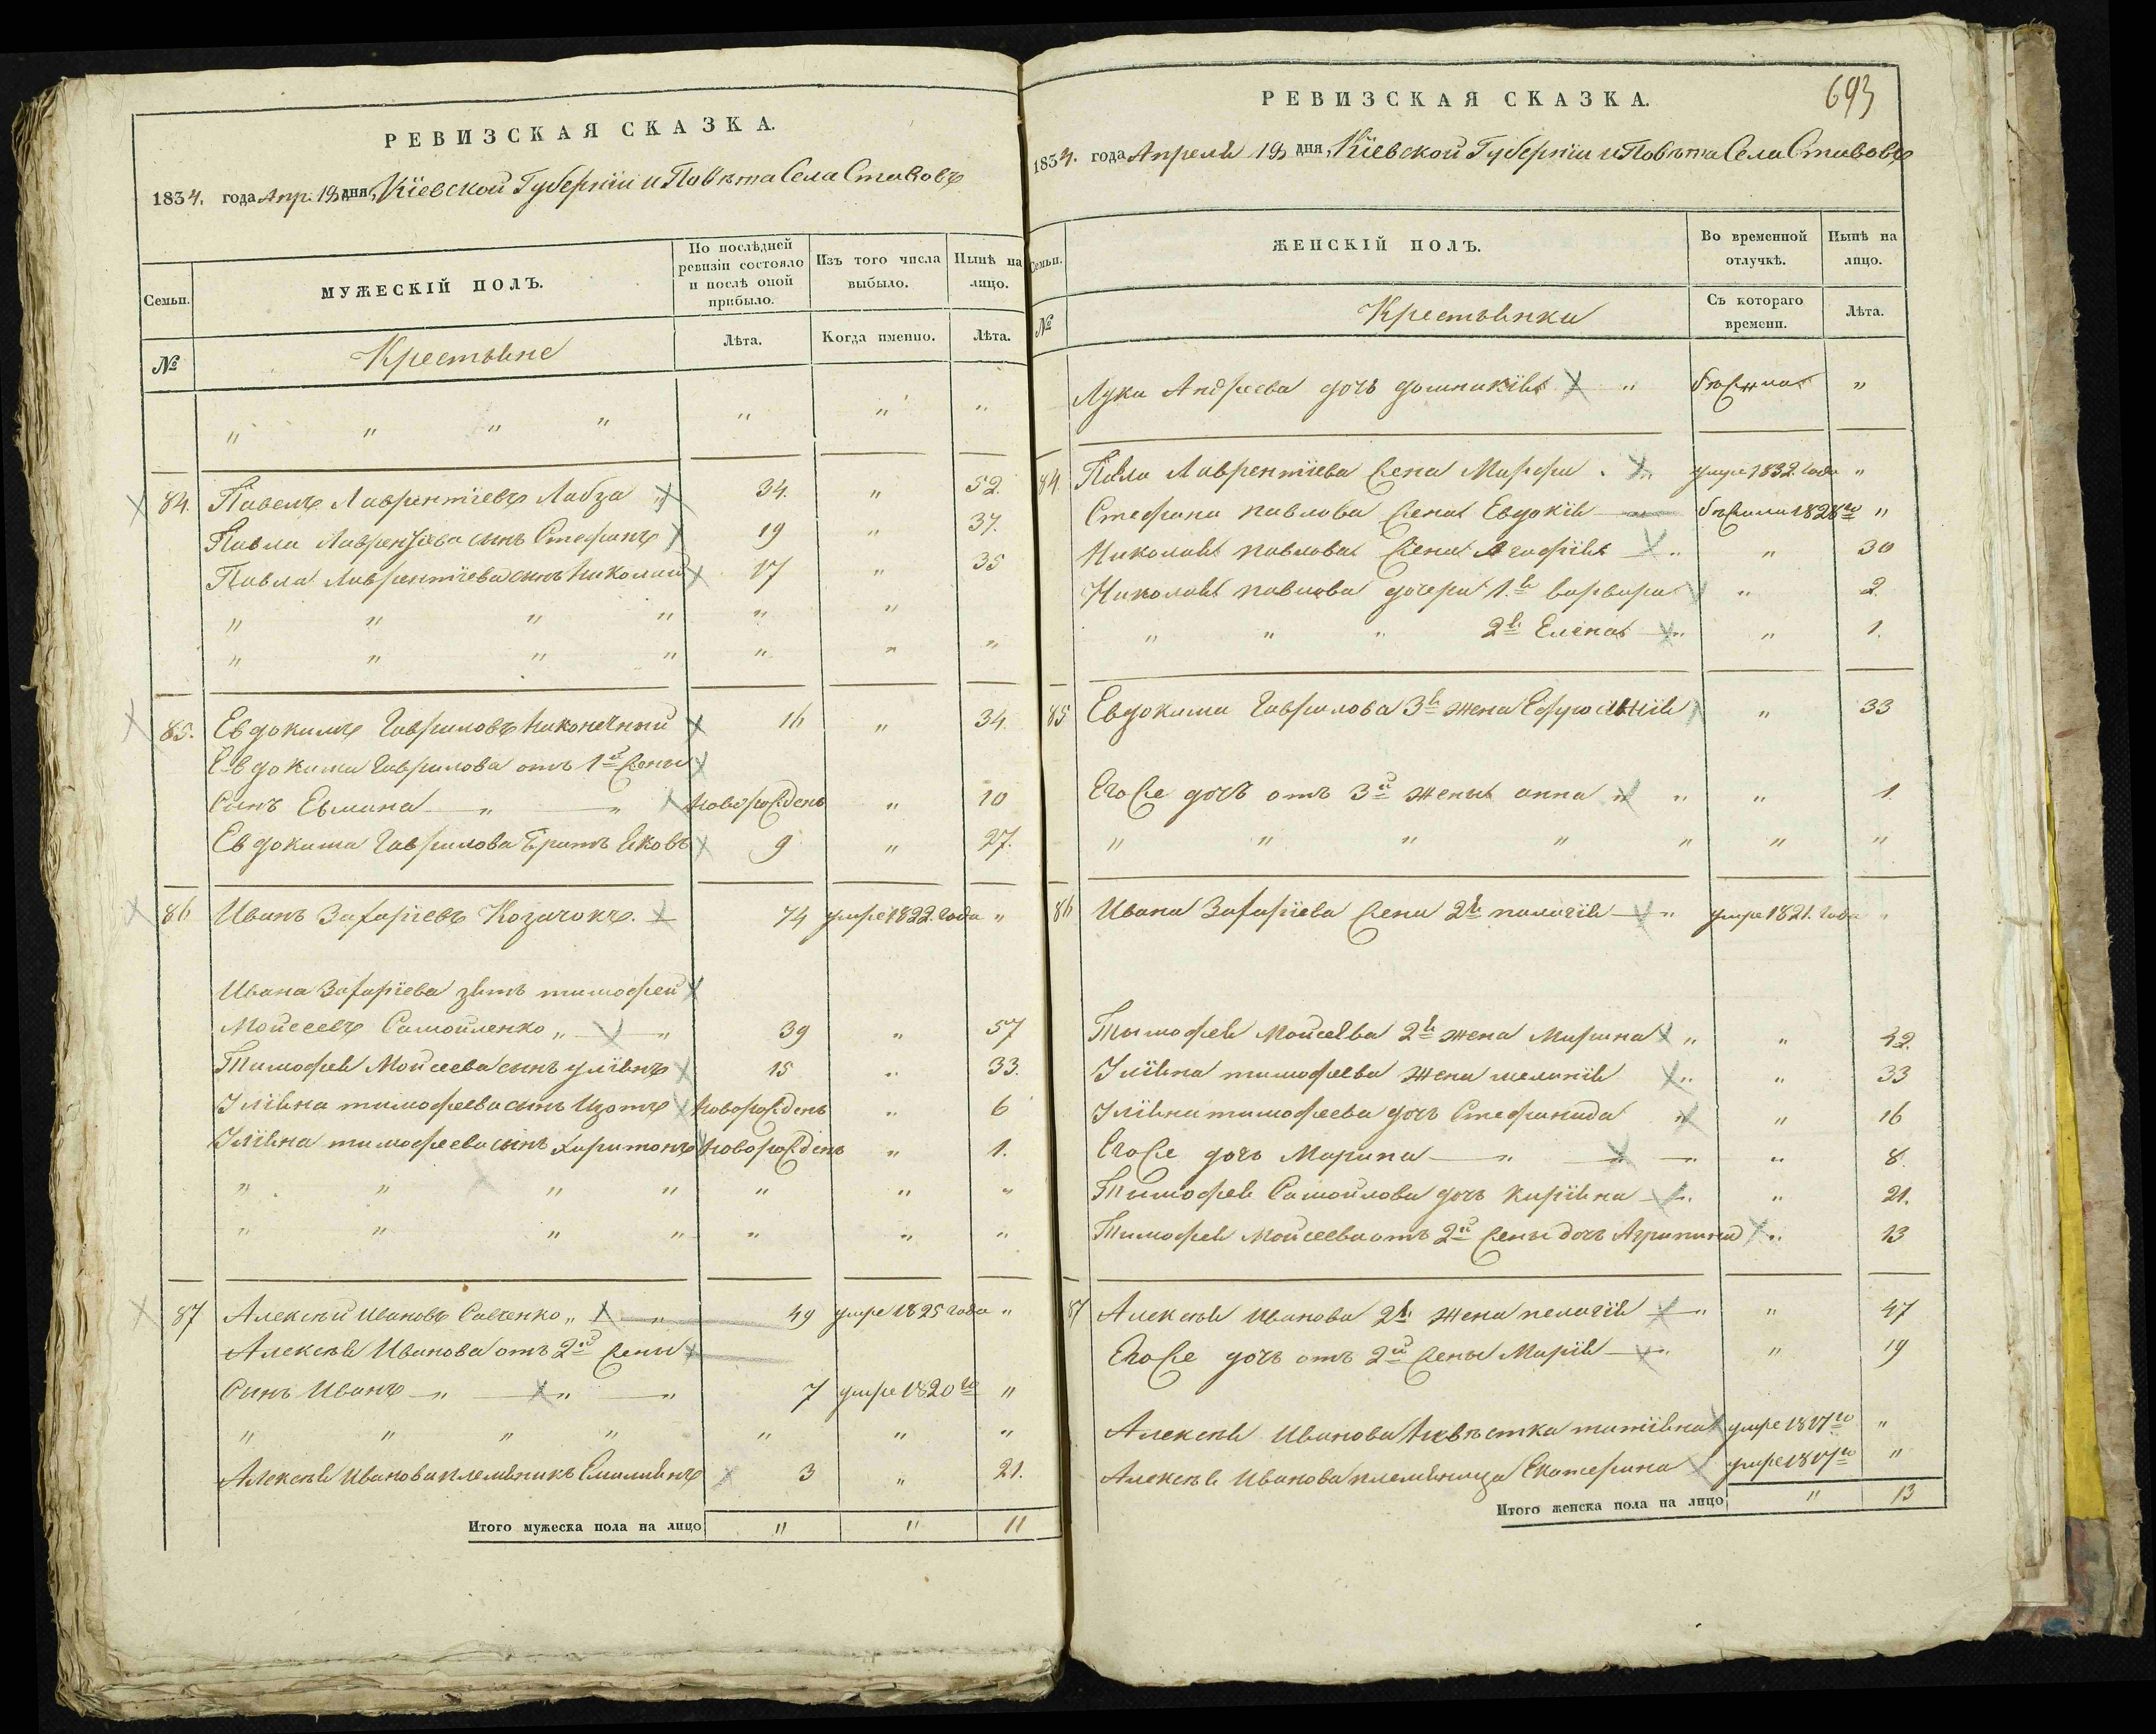 РЕВИЗСКАЯ СКАЗКА.
1834. года Апр. 19 дня, Кіевской Губерніи и Повѣта Села Ставовъ
Семьи.
МУЖЕСКІЙ ПОЛЪ.
По послѣдней ревизіи состояло и послѣ оной прибыло.
Изъ того числа выбыло.
Нынѣ на лицо.
№
Крестьяне
Лѣта.
Когда именно.
Лѣта.
" " " " " " "
84. Павелъ Лаврентіевъ Лабза " 34. " 52.
Павла Лаврентіева сынъ Стефанъ 19 " 37.
Павла Лаврентіева сынъ Николай 17 " 35
" " " " " "
" " " " " " "
85. Евдокимъ Гавриловъ Наконечный 16 " 34.
Евдокима Гаврилова отъ 1й жены
Сынъ Емилианъ " " новорожденъ " 10
Евдокима Гаврилова братъ Яковъ 9 " 27.
86 Иванъ Захаріевъ Козачокъ. 74 умре 1822. года "
Ивана Захаріева зять тимофей
Мойсеевъ Самойленко " " 39 " 57
Тимофея Мойсеева сынъ уліянъ 15 " 33.
Уліяна тимофеева сынъ Изотъ новорожденъ " 6
Уліяна тимофеева сынъ Харитонъ новорожденъ " 1.
" " " " " " "
" " " " " " "
87 Алексѣй Ивановъ Савченко " " 49 умре 1825 года "
Алексѣя Иванова отъ 2й жены
Сынъ Иванъ " " " 7 умре 1820го "
" " " " " " "
Алексѣя Иванова племянникъ Емилиянъ 3 " 21.
Итого мужеска пола на лицо " " 11
РЕВИЗСКАЯ СКАЗКА.
693
1834. года Апреля 19 дня, Кіевской Губерніи и Повѣта Села Ставовъ
Семьи.
ЖЕНСКІЙ ПОЛЪ.
Во временной отлучкѣ.
Нынѣ на лицо.
№
Крестьянки
Съ котораго времени.
Лѣта.
Луки Андреева дочь домникія " бѣжила "
84. Павла Лаврентіева жена Марфа " умре 1832. года "
Стефана павлова жена Евдокія бѣжила 1828го "
Николая павлова жена Агафія " " 30
Николая павлова дочери 1я варвара " 2.
" " " 2я Елена " " 1.
85 Евдокима Гаврилова 3я жена Ефросинія " 33
Его же дочь отъ 3й жены анна " " " 1.
" " " " " " "
86 Ивана Захаріева жена 2я палагія " умре 1821. года "
Тымофея Мойсеева 2я жена Марина " " 42.
Уліяна тимофеева жена меланія " " 33
Уліяна тимофеева дочь Стефанида " " 16
Его же дочь Марина " " " " 8.
Тимофея Самойлова дочь киріяна " " 21.
Тимофея Мойсеева отъ 2й жены дочь Агрипина " 13
87 Алексѣя Иванова 2я жена пелагія " " 47
Его же дочь отъ 2й жены Марія " " 19
Алексѣя Иванова Невѣстка татіяна умре 1817го "
Алексѣя Иванова племянница Екатерина умре 1817го "
Итого женска пола на лицо " 13